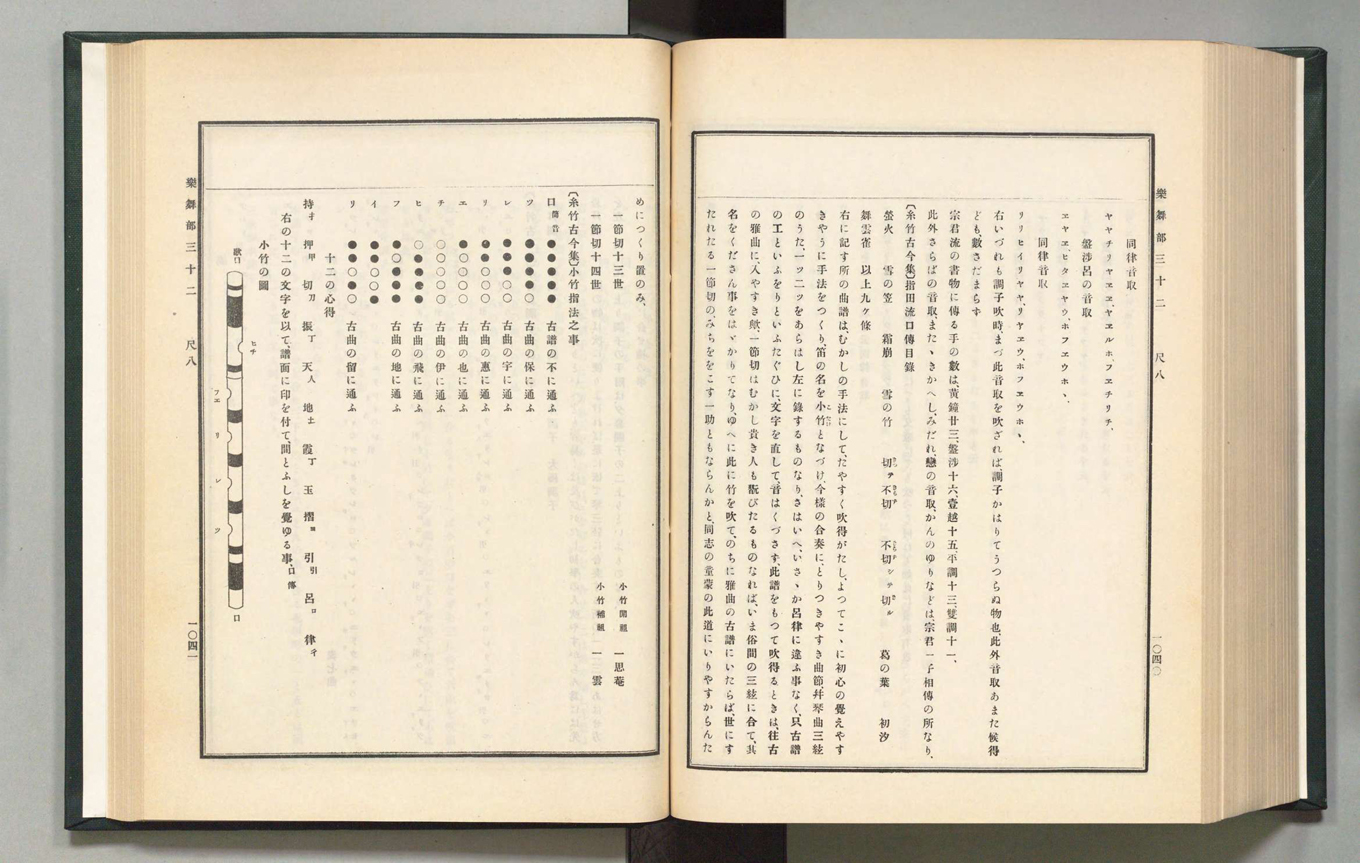 樂舞部三十二 尺八
一〇四〇
同律音取
ヤヤチリヤヱヱ、ヤヱルホ、フヱチリチ、
盤渉呂の音取
ヱヤヱ、ヒタヱヤウ、ホフヱウホヽ、
同律音取
リリヒイリヤヤ、リヤヱウ、ホフヱウホヽ、
右いづれも調子吹時、まづ此音取を吹ざれば、調子かはりてうつらぬ物也、此外音取あまた候得
ども、數さだまらず
宗君流の書物に傳る手の數は、黃鐘廿三、盤渉十六、壹越十五、平調十三、雙調十一、
此外さらばの音取、またヽきかへし、みだれ戀の音取、かんのゆりなどは、宗君一子相傳の所なり、
〔糸竹古今集〕指田流口傳目錄
螢火 雪の笠 霜崩 雪の竹 切テ不切 不切シテ切ル 葛の葉 初汐
舞雲雀 以上九ケ條
右に記す所の曲譜は、むかしの手法にして、たやすく吹得がたし、よつてこヽに初心の覺えやす
きやうに手法をつくり、笛の名を小竹となづけ、今樣の合奏に、とりつきやすき曲節、幷琴曲三絃
のうた、一ツ二ツをあらはし左に錄するものなり、さはいへ、いさヽか呂律に違ふ事なく、只古譜
の工といふをりといふたぐひに、文字を直して、音はくづさず、此譜をもつて吹得るときは、往古
の雅曲に入やすき歟、一節切はむかし貴き人も翫びたるものなれば、いま俗間の三絃に合て、其
名をくださん事をはヾかりてなり、ゆへに此に竹を吹て、のちに雅曲の古譜にいたらば、世にす
たれたる一節切のみちををこす一助ともならんかと、同志の童蒙の此道にいりやすからんた
めにつくり置のみ、
一節切十三世 小竹開祖 一思菴
一節切十四世 小竹補祖 一雲
〔糸竹古今集〕小竹指法之事
口 筒音 ●●●●● 古譜の不に通ふ
ツ ●●●●○ 古曲の保に通ふ
レ ●●●○○ 古曲の宇に通ふ
リ ●●○○○ 古曲の惠に通ふ
ヱ ●○○○○ 古曲の也に通ふ
チ ○○○○○ 古曲の伊に通ふ
ヒ ○●●●● 古曲の飛に通ふ
フ ●○●●● 古曲の地に通ふ
イ ●○○○●
リ ●●○●○ 古曲の留に通ふ
十二の心得
持オ 押甲 切刀 振丁 天人 地土 霞丁 玉 摺ヨ 引引 呂ロ 律イ
右の十二の文字を以て、譜面に印を付て、間とふしを覺ゆる事、口傳
小竹の圖
歌口 ヒチ フヱ リ レ ツ ロ
樂舞部三十二 尺八
一〇四一